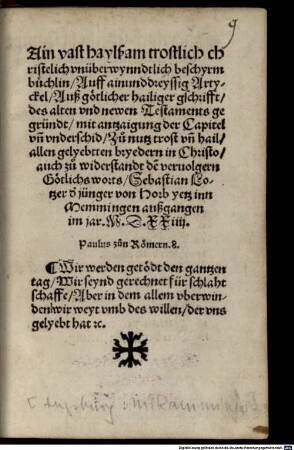 9
Ain vast haylsam trostlich ch
ristelich vnüberwynndtlich beschyrm
büchlin/Auff ainunddreyssig Arty-
ckel/Auß götlicher hailiger gschrifft/
des alten vnd newen Testaments ge
gründt/mit antzaigung der Capitel
vn̄ vnderschid/Zů nutz trost vn̄ hail/
allen gelyebtten bryedern in Christo/
auch zů widerstandt dē vervolgern
Götlichs worts/Sebastian Lo-
tzer ď jünger von Horb yetz inn
Memmingen außgangen
im jar. M. D. XXiiij.
Paulus zůn Römern.8.
¶Wir werden getödt den gantzen
tag/Wir seynd gerechnet für schlaht
schaffe/Aber in dem allem vberwin-
den wir weyt vmb des willen/der vns
gelyebt hat ꝛc.